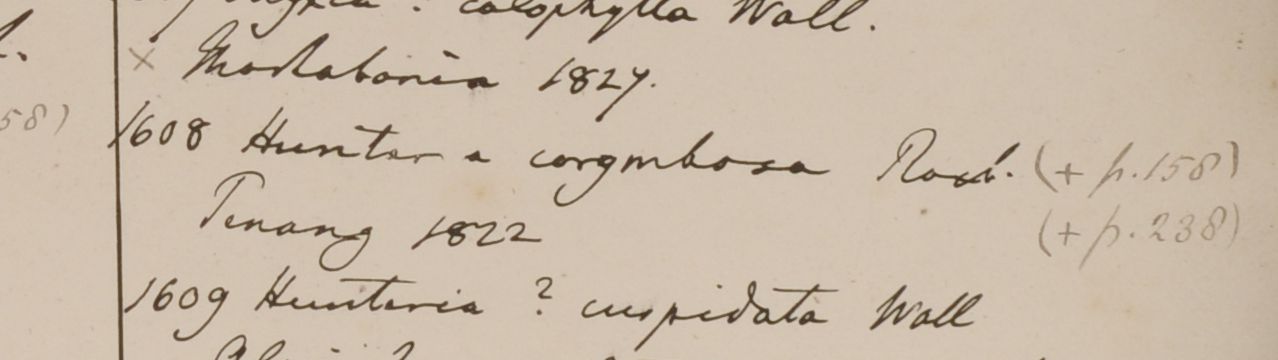 ? calophylla Wall.
× Martabania 1827.
58)
1608 Hunter a corymbosa Roxb. (+ p. 158)
Penang 1822 (+ p. 238)
1609 Hunteria ? cuspidata Wall